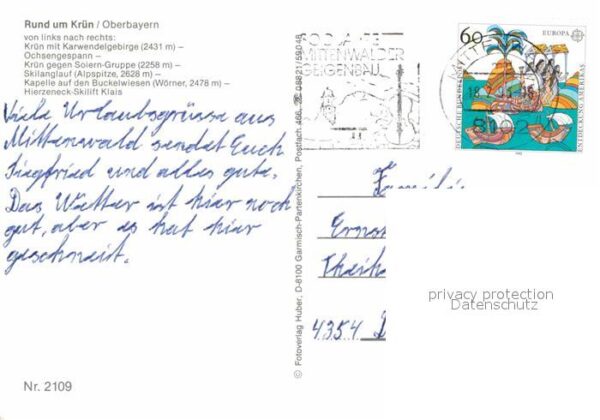 Rund um Krün / Oberbayern
von links nach rechts:
Krün mit Karwendelgebirge (2431 m) –
Ochsengespann –
Krün gegen Soiern-Gruppe (2258 m) –
Skilanglauf (Alpspitze, 2628 m) –
Kapelle auf den Buckelwiesen (Wörner, 2478 m) –
Hierzeneck-Skilift Klais
Viele Urlaubsgrüsse aus
Mittenwald sendet Euch
Siegfried und alles gute.
Das Wetter ist hier noch
gut, aber es hat hier
geschneit.
Nr. 2109
© Fotoverlag Huber, D-8100 Garmisch-Partenkirchen, Postfach 466, ☎ 08821/59048
MITTENWALDER
GEIGENBAU
60
EUROPA
DEUTSCHE BUNDESPOST
ENTDECKUNG AMERIKAS
8102
Familie
Ernst
4354
privacy protection
Datenschutz